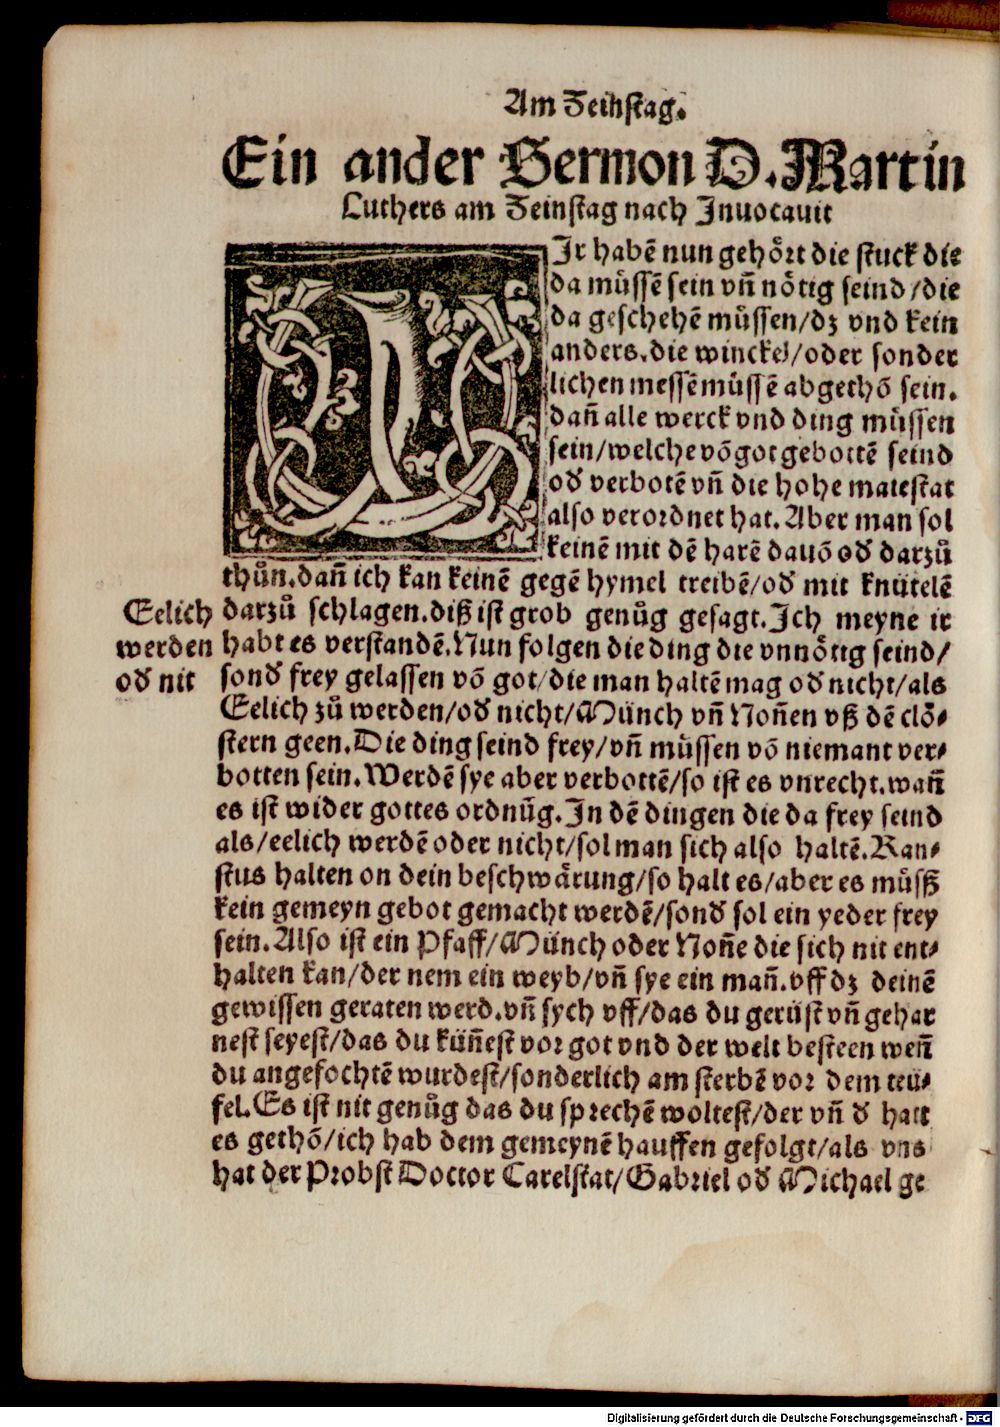 Am Zeinstag.
Ein ander Sermon D. Martin
Luthers am Zeinstag nach Inuocauit
WIr habē nun gehoͤrt die stuck die
da muͤssē sein vn̄ noͤtig seind/die
da geschehē muͤssen/dz vnd kein
anders. die winckel/oder sonder
lichen messē muͤssē abgethō sein.
dan̄ alle werck vnd ding muͤssen
sein/welche vō got gebottē seind
od verbotē vn̄ die hohe maiestat
also verordnet hat. Aber man sol
keinē mit dē harē dauō od darzuͦ
thuͦn. dan̄ ich kan keinē gegē hymel treibē/od mit knütelē
darzuͦ schlagen. diß ist grob genuͦg gesagt. Ich meyne ir
habt es verstandē. Nun folgen die ding die vnnoͤtig seind/
sond frey gelassen vō got/die man haltē mag od nicht/als
Eelich zuͦ werden/od nicht/Münch vn̄ Non̄en vß dē cloͤ-
stern geen. Die ding seind frey/vn̄ muͤssen vō niemant ver-
botten sein. Werdē sye aber verbottē/so ist es vnrecht. wan̄
es ist wider gottes ordnūg. In dē dingen die da frey seind
als/eelich werdē oder nicht/sol man sich also haltē. Kan-
stus halten on dein beschwaͤrung/so halt es/aber es muͤsß
kein gemeyn gebot gemacht werdē/sond sol ein yeder frey
sein. Also ist ein Pfaff/Münch oder Non̄e die sich nit ent-
halten kan/der nem ein weyb/vn̄ sye ein man̄. vff dz deinē
gewissen geraten werd. vn̄ sych vff/das du gerüst vn̄ gehar
nest seyest/das du kün̄est vor got vnd der welt besteen wen̄
du angefochtē wurdest/sonderlich am sterbē vor dem teü-
fel. Es ist nit genuͦg das du sprechē woltest/der vn̄ d hatt
es gethō/ich hab dem gemeynē hauffen gefolgt/als vns
hat der Probst Doctor Carelstat/Gabriel od Michael ge
Eelich
werden
od nit
Digitalisierung gefördert durch die Deutsche Forschungsgemeinschaft - DFG